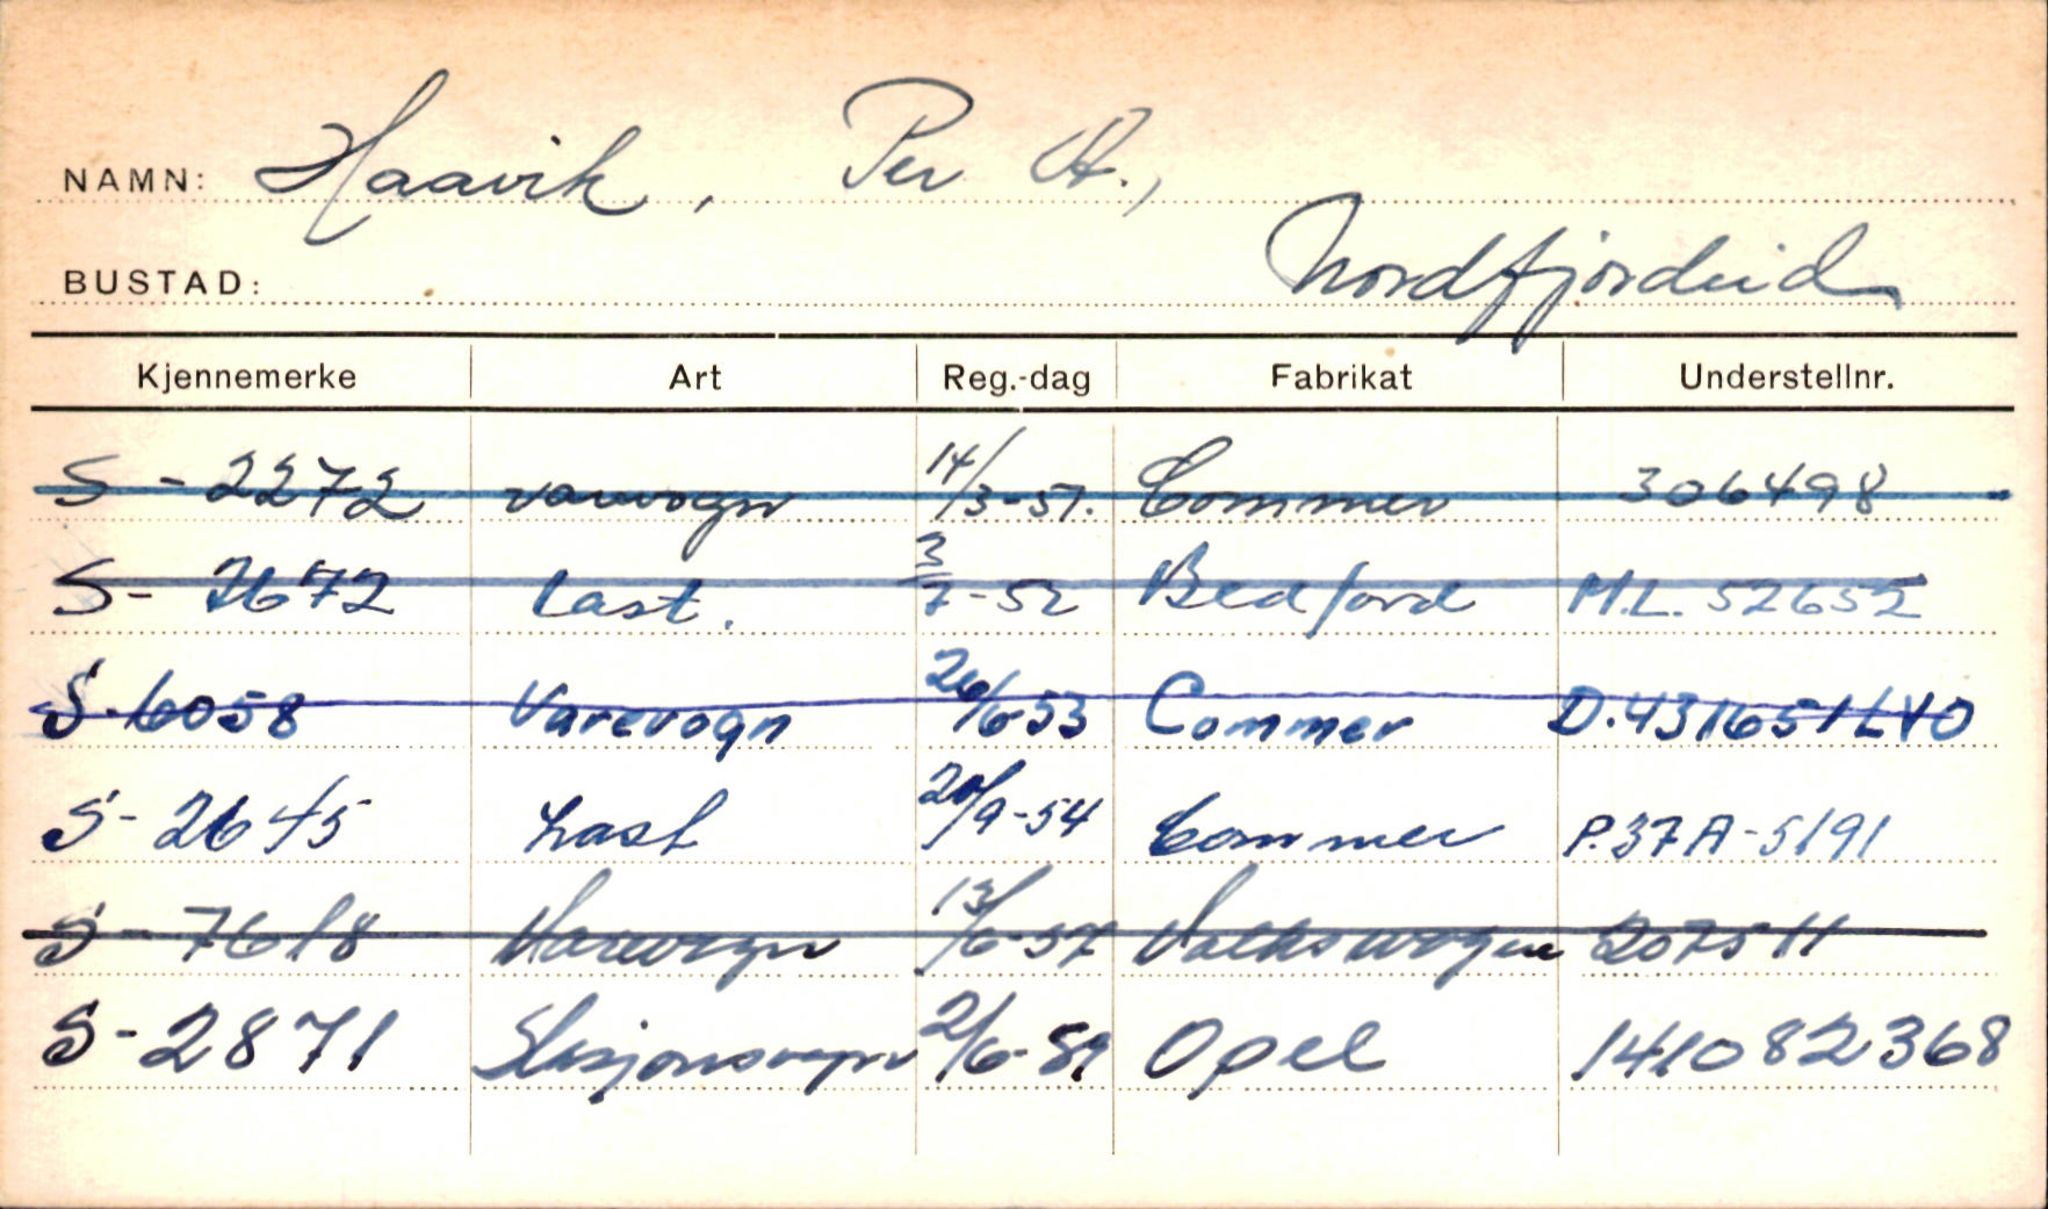 NAMN: Haavik, Per A.,
BUSTAD: Nordfjordeid
Kjennemerke Art Reg.-dag Fabrikat Understellnr.
S - 2272 varevogn 14/3-51. Commer 306498
S - 2672 Last. 3/7-52 Bedford M.L. 52652
S - 6058 Varevogn 26/6-53 Commer D.431651LVO
S - 2645 Last 20/9-54 Commer P.37A-5191
S - 7618 Varevogn 13/6-57 Volkswogen 207511
S - 2871 Stasjonsvogn 2/6-59 Opel 141082368